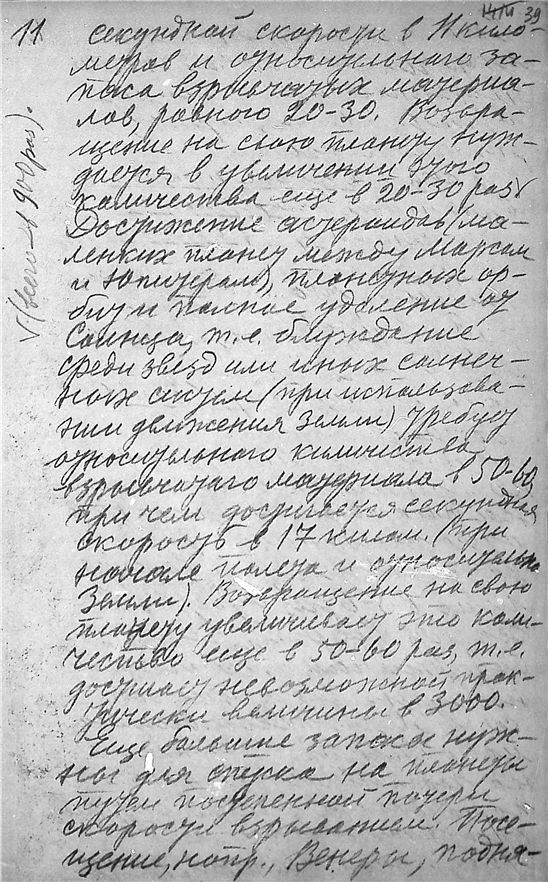 39
11 секундной скорости в 11 кило-
метров и относительного за-
паса взрывчатых материа-
лов, равного 20-30. Возвра-
щение на свою планету нуж-
дается в увеличении этого
количества еще в 20-30 раз √
√ (всего – в 900 раз).
Достижение астероидов (ма-
леньких планет между Марсом
и Юпитером), планетных ор-
бит и полное удаление от
Солнца, т.е. блуждание
среди звезд или иных солнеч-
ных систем (при использова-
нии движения Земли) требует
относительного количества
взрывчатого материала в 50-60,
при чем достигается секундная
скорость в 17 килом. (при
начале полета и относительно
Земли). Возвращение на свою
планету увеличивает это коли-
чество еще в 50-60 раз, т.е.
достигает невозможной прак-
тически величины в 3000.
Еще большие запасы нуж-
ны для спуска на планеты
путем постепенной потери
скорости взрыванием. Посе-
щение, напр., Венеры, подня-